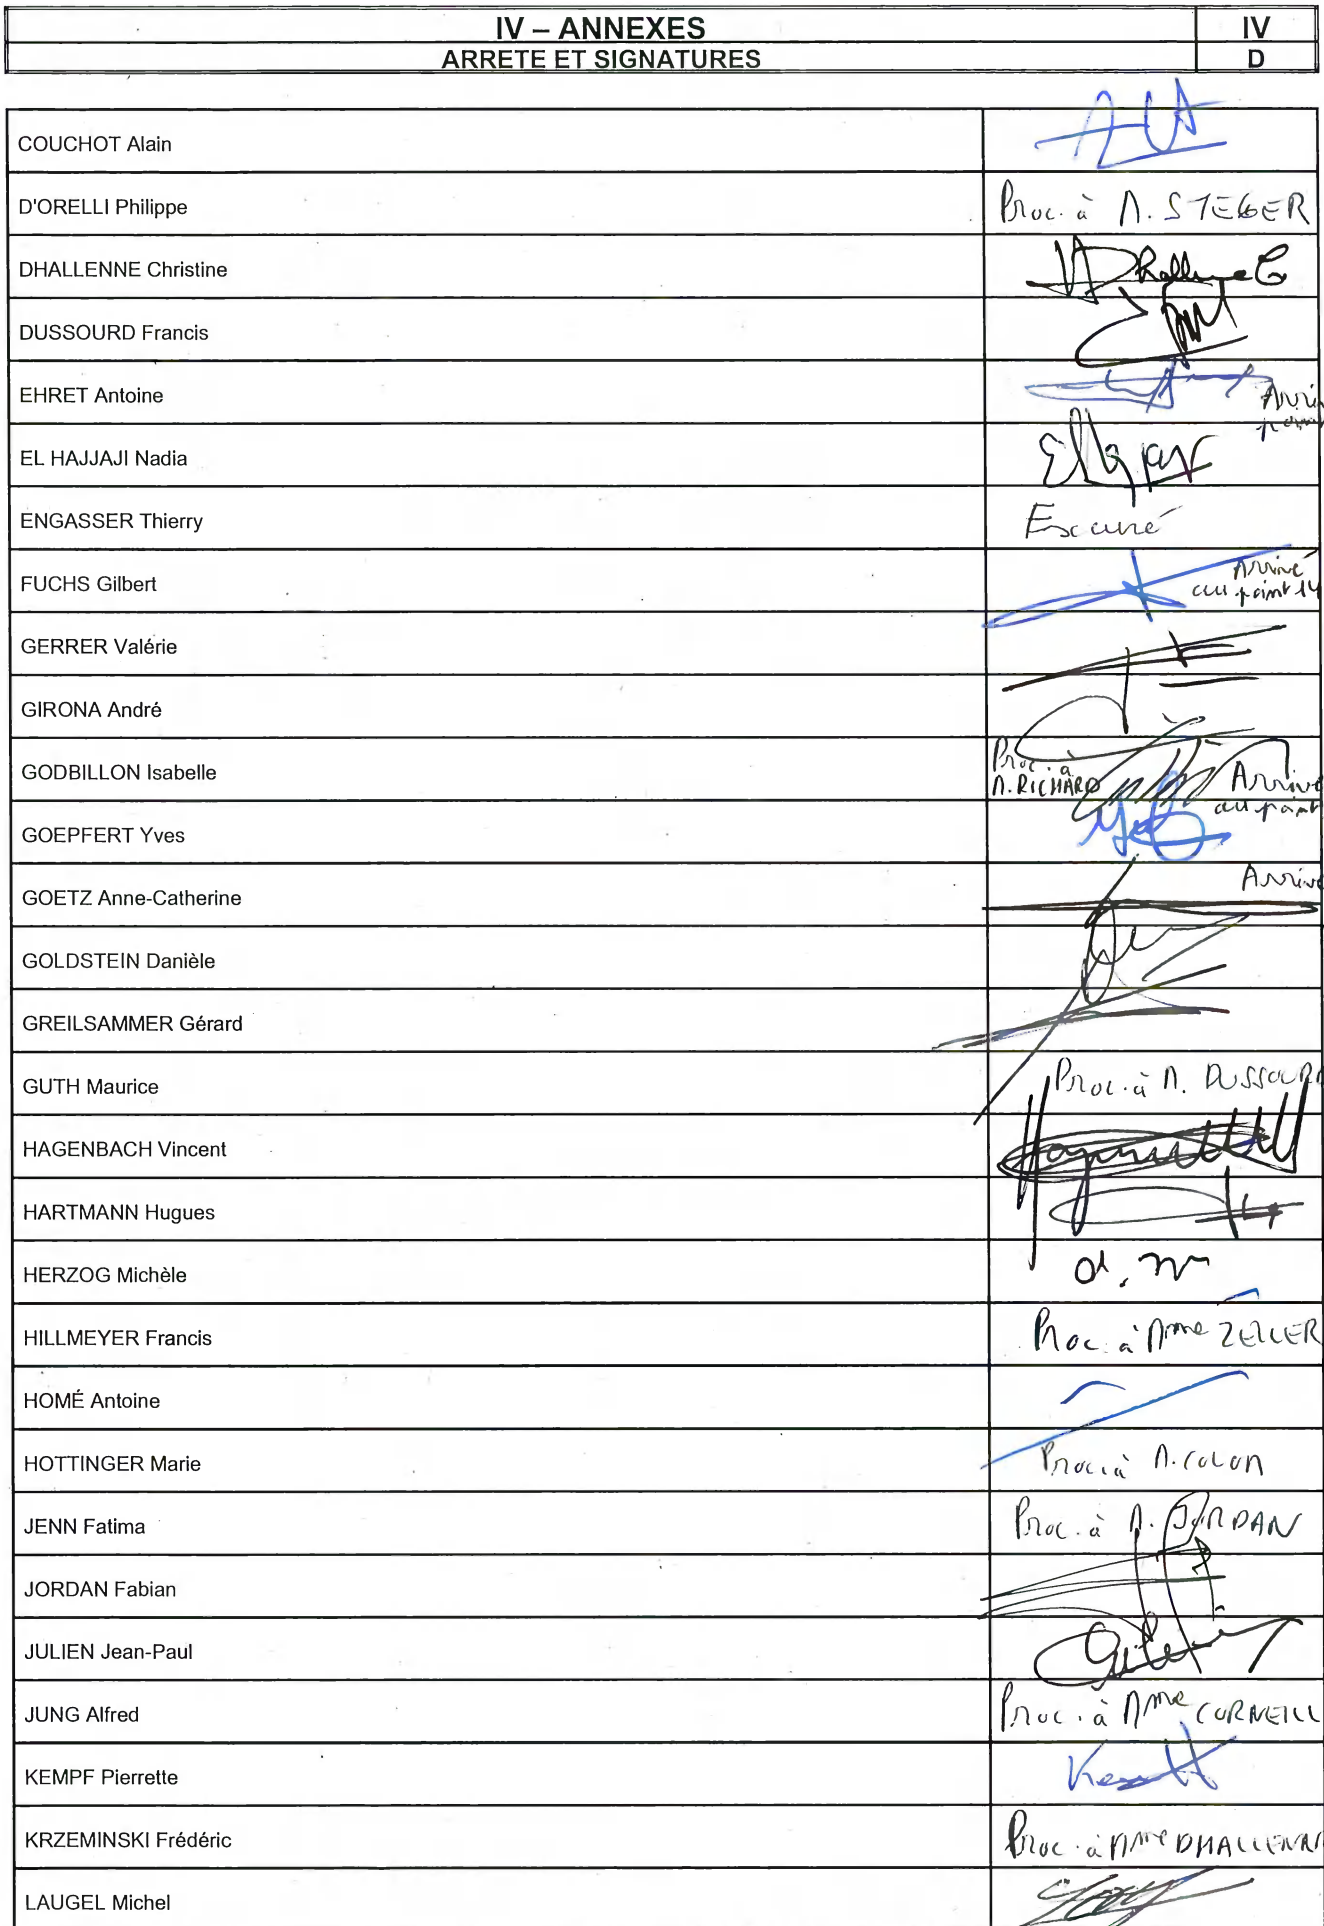 IV – ANNEXES IV
ARRETE ET SIGNATURES D
COUCHOT Alain
D'ORELLI Philippe Proc. à M. STEGER
DHALLENNE Christine
DUSSOURD Francis
EHRET Antoine
EL HAJJAJI Nadia
ENGASSER Thierry Excusé
FUCHS Gilbert Arrivé
au point 14
GERRER Valérie
GIRONA André
GODBILLON Isabelle Proc. à
M. RICHARD
au point
GOEPFERT Yves
GOETZ Anne-Catherine
GOLDSTEIN Danièle
GREILSAMMER Gérard
GUTH Maurice Proc. à M. DUSSOURD
HAGENBACH Vincent
HARTMANN Hugues
HERZOG Michèle
HILLMEYER Francis Proc. à Mme ZELLER
HOMÉ Antoine
HOTTINGER Marie Proc. à M. COLOM
JENN Fatima Proc. à M. JORDAN
JORDAN Fabian
JULIEN Jean-Paul
JUNG Alfred Proc. à Mme CORNEILL
KEMPF Pierrette
KRZEMINSKI Frédéric Proc. à Mme DHALLENN
LAUGEL Michel